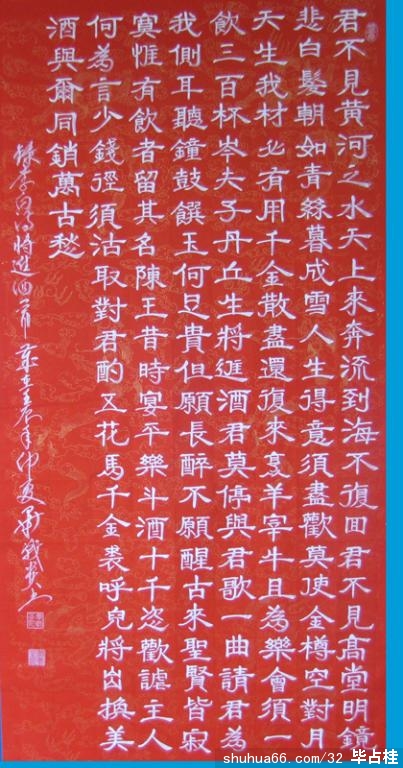 君不見黃河之水天上來奔流到海不復回君不見高堂明鏡
悲白髮朝如青絲暮成雪人生得意須盡歡莫使金樽空對月
天生我材必有用千金散盡還復來烹羊宰牛且為樂會須一
飲三百杯岑夫子丹丘生將進酒君莫停與君歌一曲請君為
我側耳聽鐘鼓饌玉何足貴但願長醉不願醒古來聖賢皆寂
寞惟有飲者留其名陳王昔時宴平樂斗酒十千恣歡謔主人
何為言少錢徑須沽取對君酌五花馬千金裘呼兒將出換美
酒與爾同銷萬古愁
錄李白詩將進酒一首歲在壬辰年仲夏
shuhua66.com/32 毕占桂